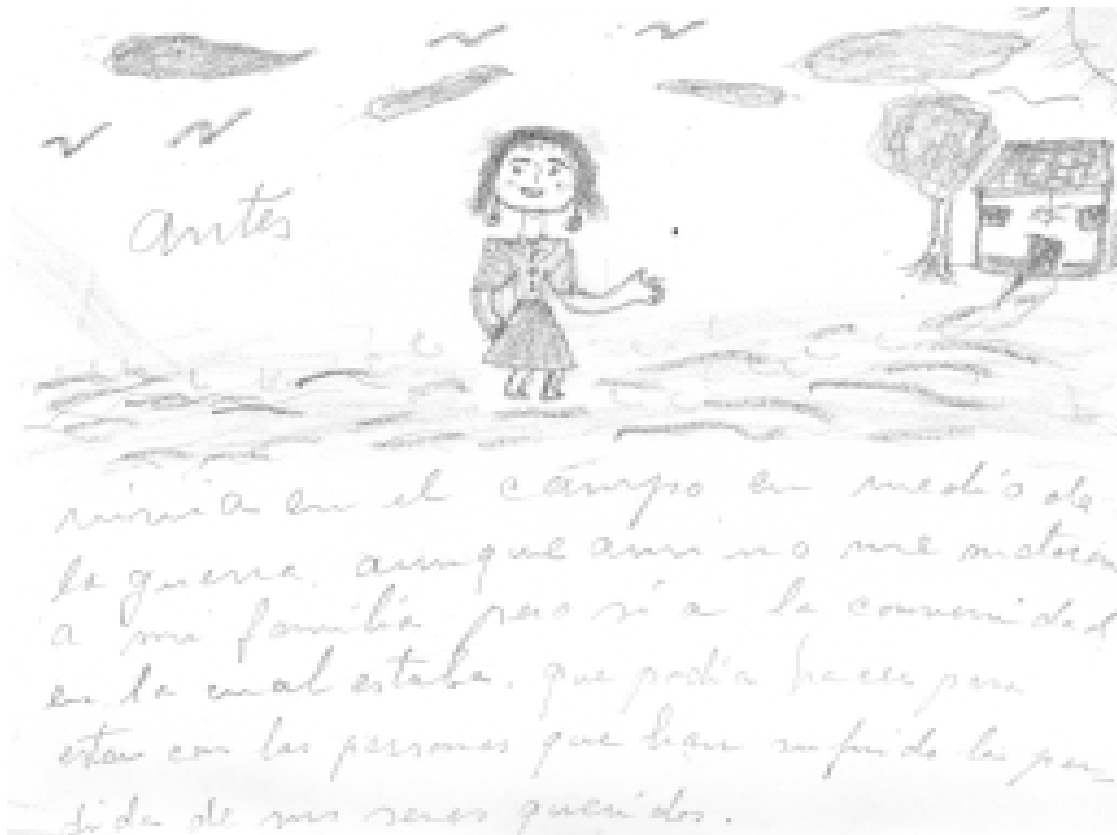 antes
vivia en el campo en medio de
la guerra. aunque aun no me mataron
a mi familia pero si a la comunidad
en la cual estaba. que podia hacer para
estar con las personas que han sufrido la per_
dida de sus seres queridos.